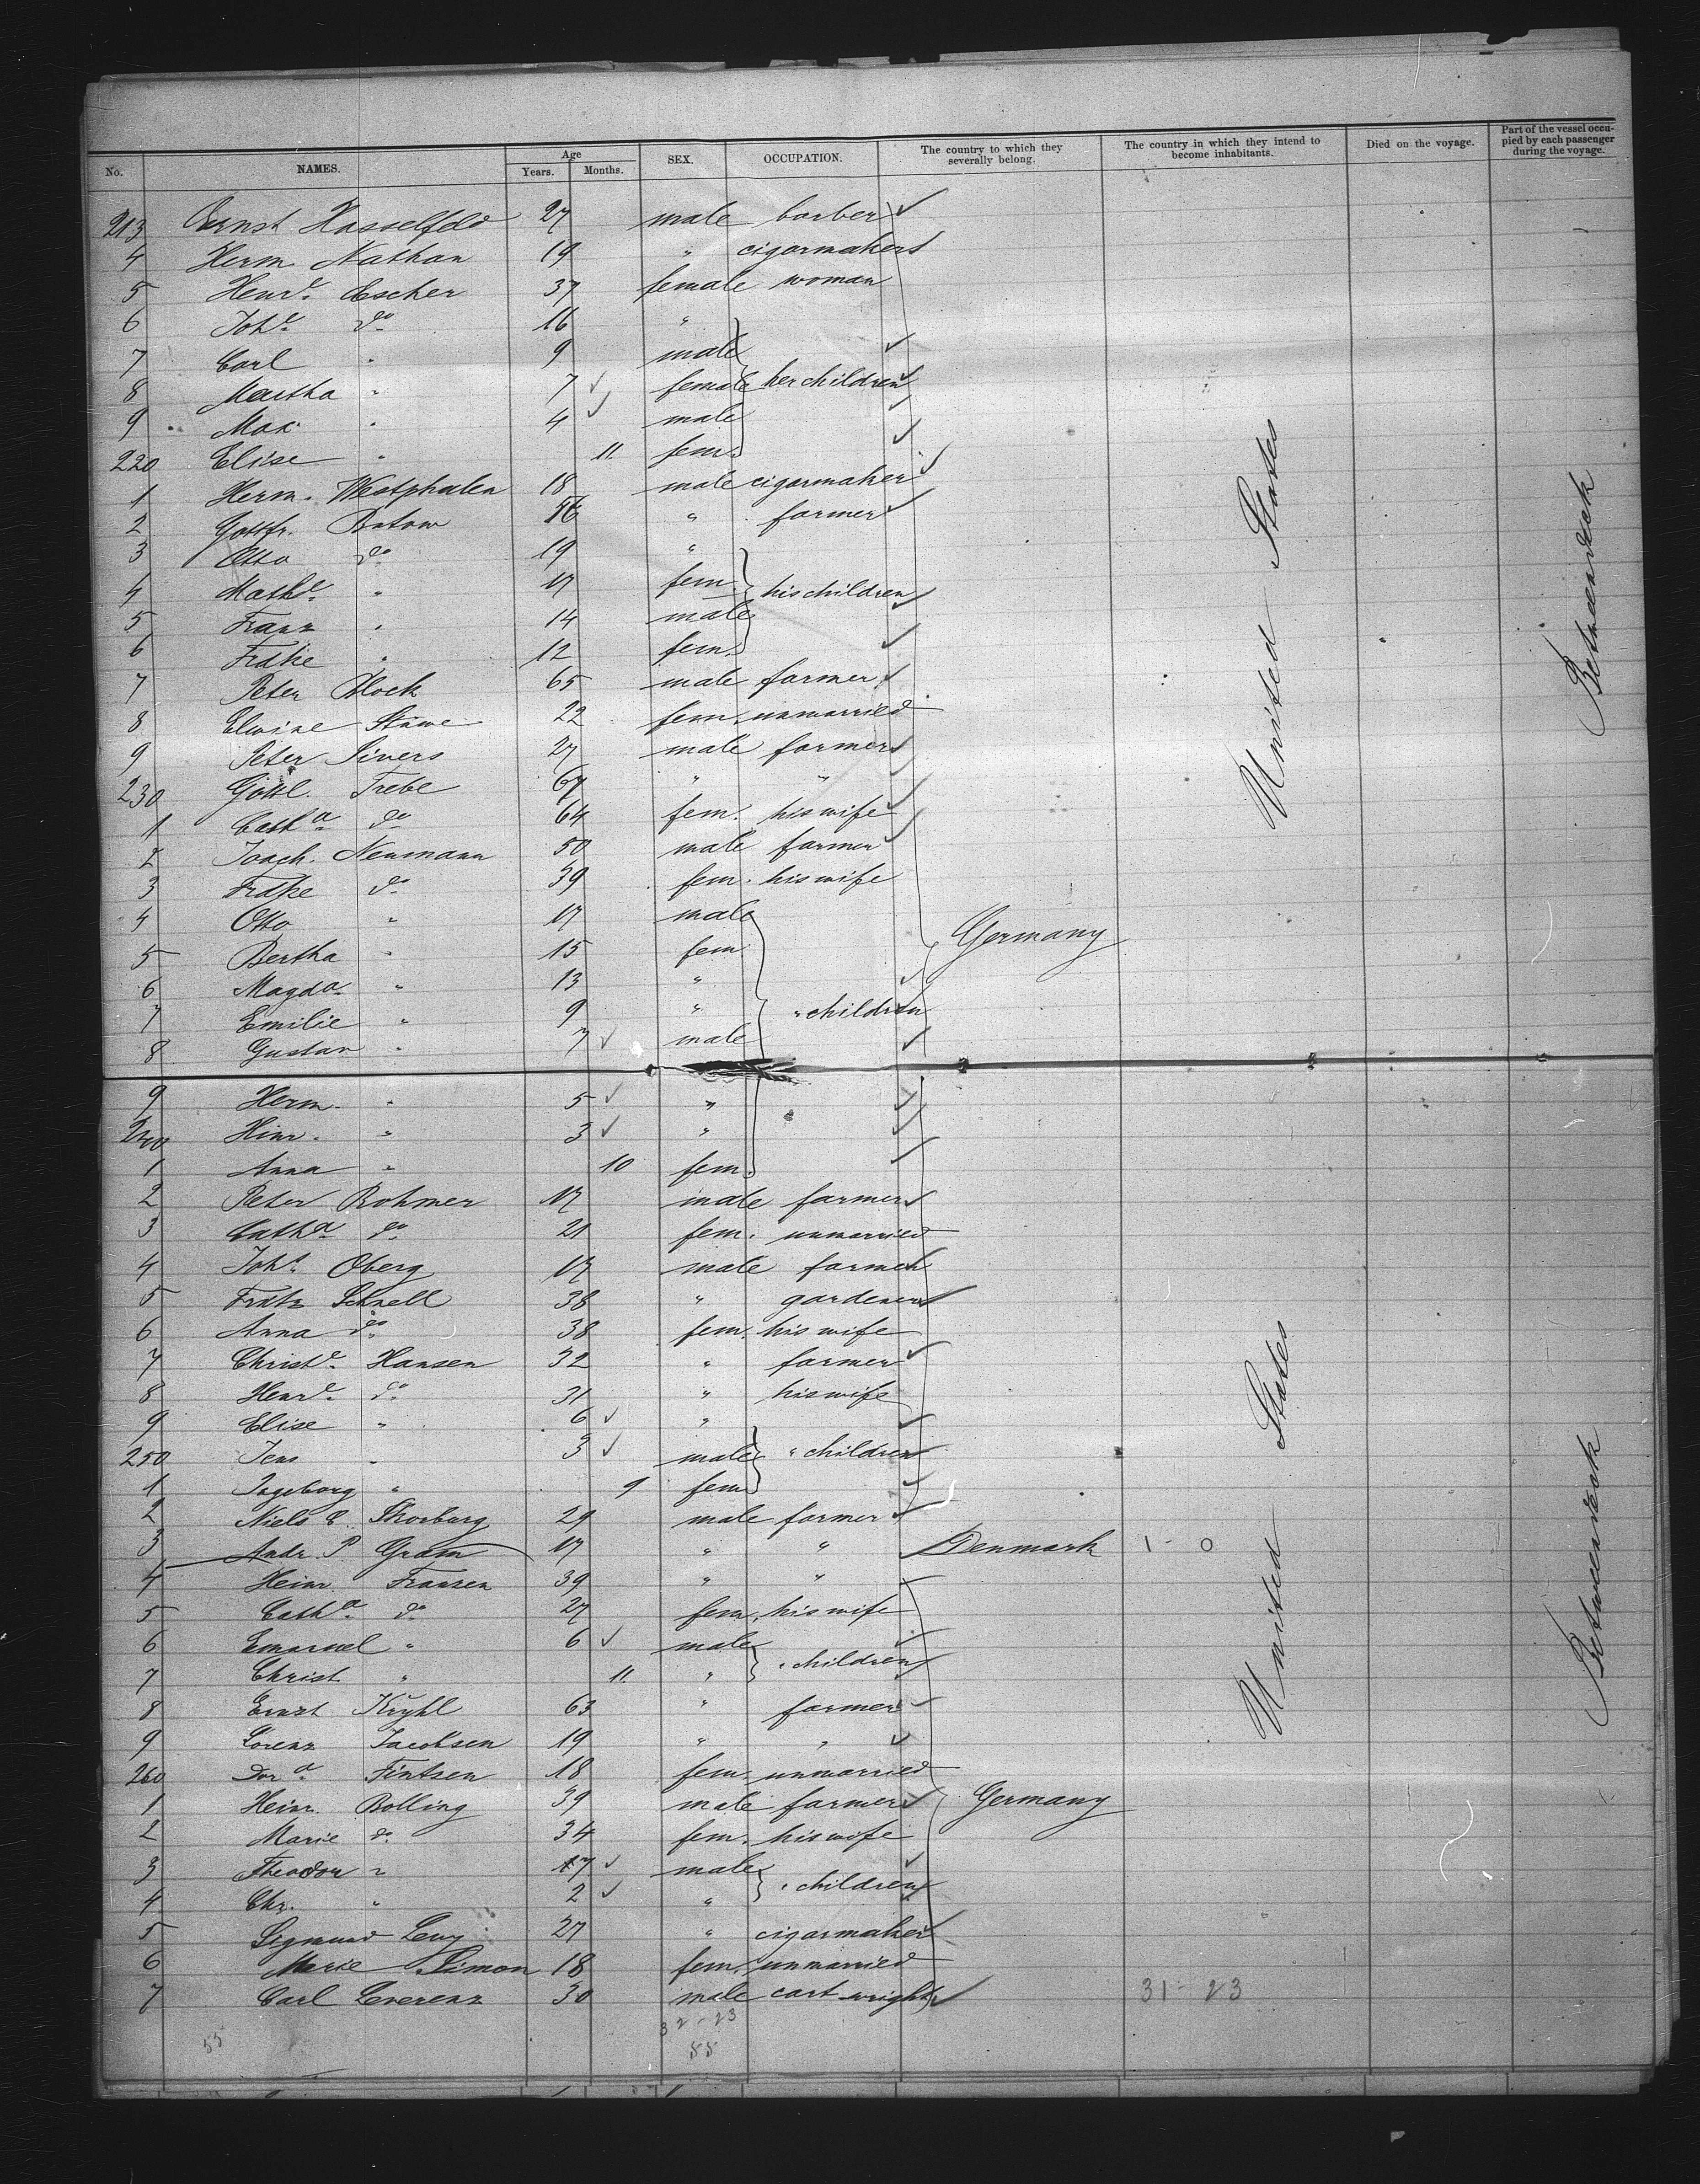 No. NAMES. Age Years. Months. SEX. OCCUPATION. The country to which they severally belong. The country in which they intend to become inhabitants. Died on the voyage. Part of the vessel occupied by each passenger during the voyage.
213 Ernst Hasselfeld 27 male barber
4 Herm. Nathan 19 " cigarmaker
5 Henr.e Escher 37 female woman
6 Joh.e do 16 "
7 Carl " 9 male
8 Martha " 7 female her children
9 Max " 4 male
220 Elise " 11 fem.
1 Herm. Westphalen 18 male cigarmaker
2 Gottfr. Butow " farmer
3 Otto do 19 "
4 Math.e " 17 fem. his children
5 Franz " 14 male
6 Frdke " 12 fem.
7 Peter Block 65 male farmer
8 Elwine Stüwe 22 fem. unmarried
9 Peter Sivers 27 male farmer
230 Gottl. Trebe 67 " "
1 Cath.a do 64 fem. his wife
2 Joach. Neumann 50 male farmer
3 Frdke do 39 fem. his wife
4 Otto " 17 male
5 Bertha " 15 fem. Germany
6 Magda. " 13 "
7 Emilie " 9 " " children
8 Gustav " 7 male
9 Herm. " 5 "
240 Hinr. " 3 "
1 Anna " 10 fem.
2 Peter Rohmer 17 male farmer
3 Cath.a do 21 fem. unmarried
4 Joh.s Oberg 17 male farmer
5 Frdk Schnell 38 " gardener
6 Anna do 38 fem. his wife
7 Christ.e Hansen 32 " farmer
8 Henr.e do 31 " his wife
9 Elise " 6 "
250 Jens " 3 male " children
1 Ingeborg " 9 fem
2 Niels C. Skovburg 29 male farmer
3 Andr. P. Gram 17 " " Denmark 1 - 0
4 Heinr. Fransen 39 " "
5 Cath.a do 27 fem. his wife
6 Emanuel " 6 male
7 Christ " 11 " " children
8 Ernst Kryhl 63 " farmer
9 Lorenz Jacobsen 19 " "
260 Dor.a Fintsen 18 fem. unmarried
1 Heinr. Bolling 39 male farmer Germany
2 Marie do 34 fem. his wife
3 Theodor " 7 male
4 Chr. " 2 " " children
5 Sigmund Levy 27 " cigarmaker
6 Marie Simon 18 fem. unmarried
7 Carl Leverenz 30 male cart wright 31 - 23
32 - 23
55 55
United States
Betweendeck
United States
Betweendeck